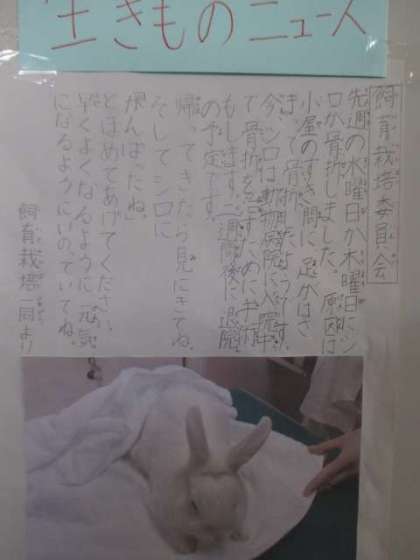 生きものニュース
飼育栽培委員会
先週の水曜日か木曜日にシ
ロが骨折しました。原因は
小屋のすき間に足がはさ
まって骨折したようです。
今シロは動物病院に入院中
で骨折を治すために手術
もします。一週間後に退院
の予定です。
帰ってきたら見にきてね。
そしてシロに
「頑んばったね」
とほめてあげてください。
早くよくなるように元気
になるようにいのっていてね。
飼育栽培一同より